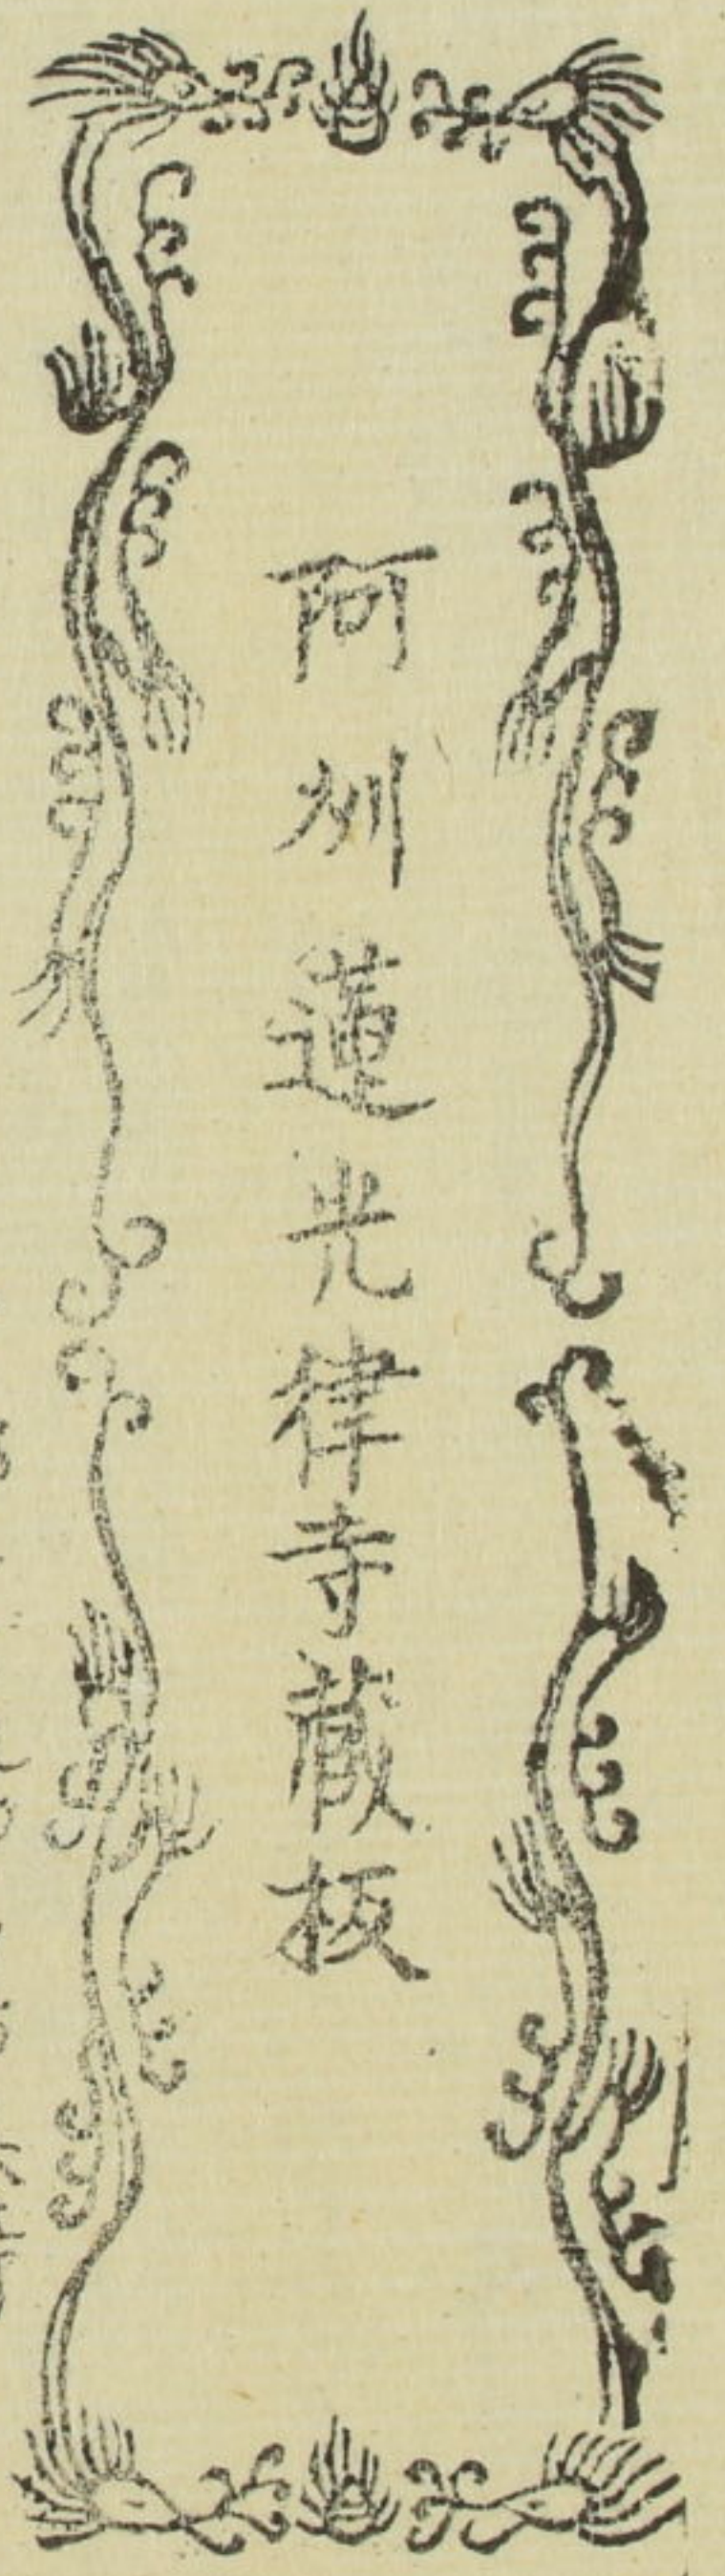 阿州蓮光律寺藏板